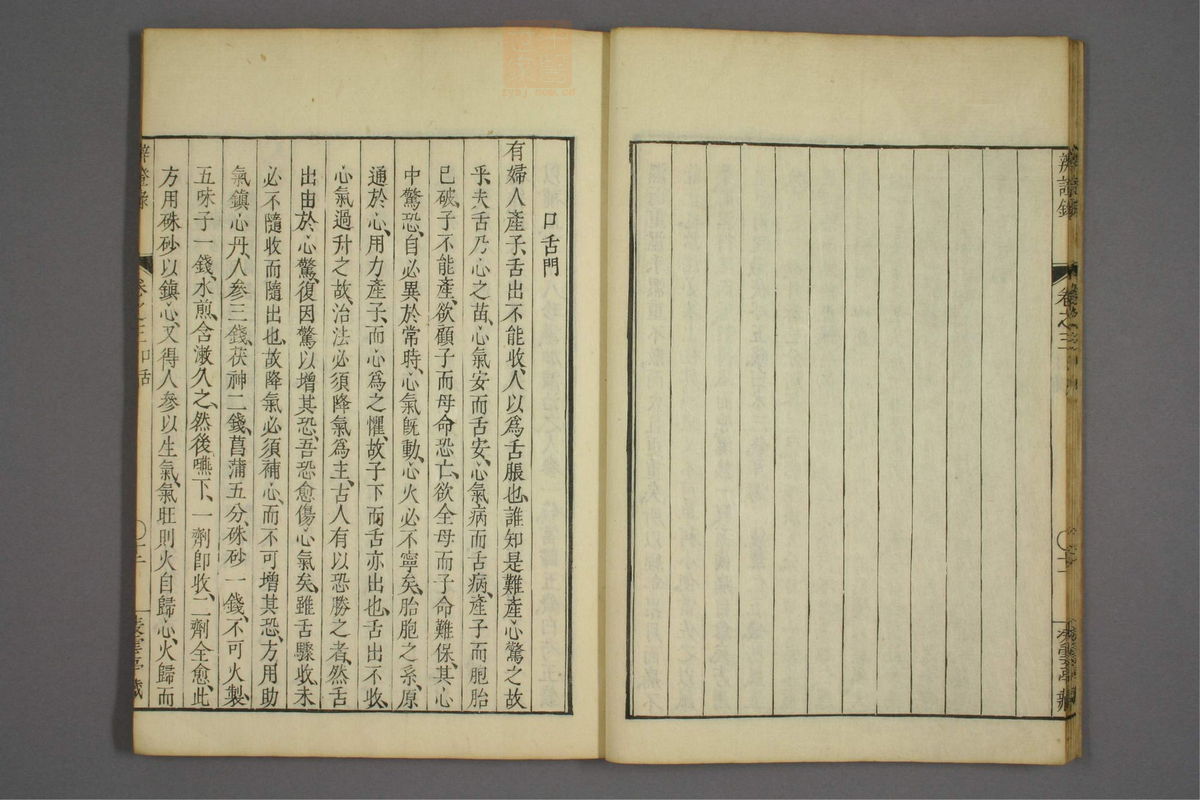 辨證錄
卷之三
口舌門
有婦人產子、舌出不能收、人以爲舌脹也、誰知是難產心驚之故
乎、夫舌乃心之苗、心氣安而舌安、心氣病而舌病、產子而胞胎
已破、子不能產、欲顧子而母命恐亡、欲全母而子命難保、其心
中驚恐、自必異於常時、心氣旣動、心火必不寧矣、胎胞之系、原
通於心、用力產子、而心爲之懼、故子下而舌亦出也、舌出不收、
心氣過升之故、治法必須降氣爲主、古人有以恐勝之者、然舌
出由於心驚、復因驚以增其恐、吾恐愈傷心氣矣、雖舌驟收、未
必不隨收而隨出也、故降氣必須補心、而不可增其恐、方用助
氣鎮心丹、人參三錢、茯神二錢、菖蒲五分、硃砂一錢、不可火製、
五味子一錢、水煎、含漱久之、然後嚥下、一劑卽收、二劑全愈、此
方用硃砂以鎮心、又得人參以生氣、氣旺則火自歸心、火歸而
辨證錄
卷之三口舌